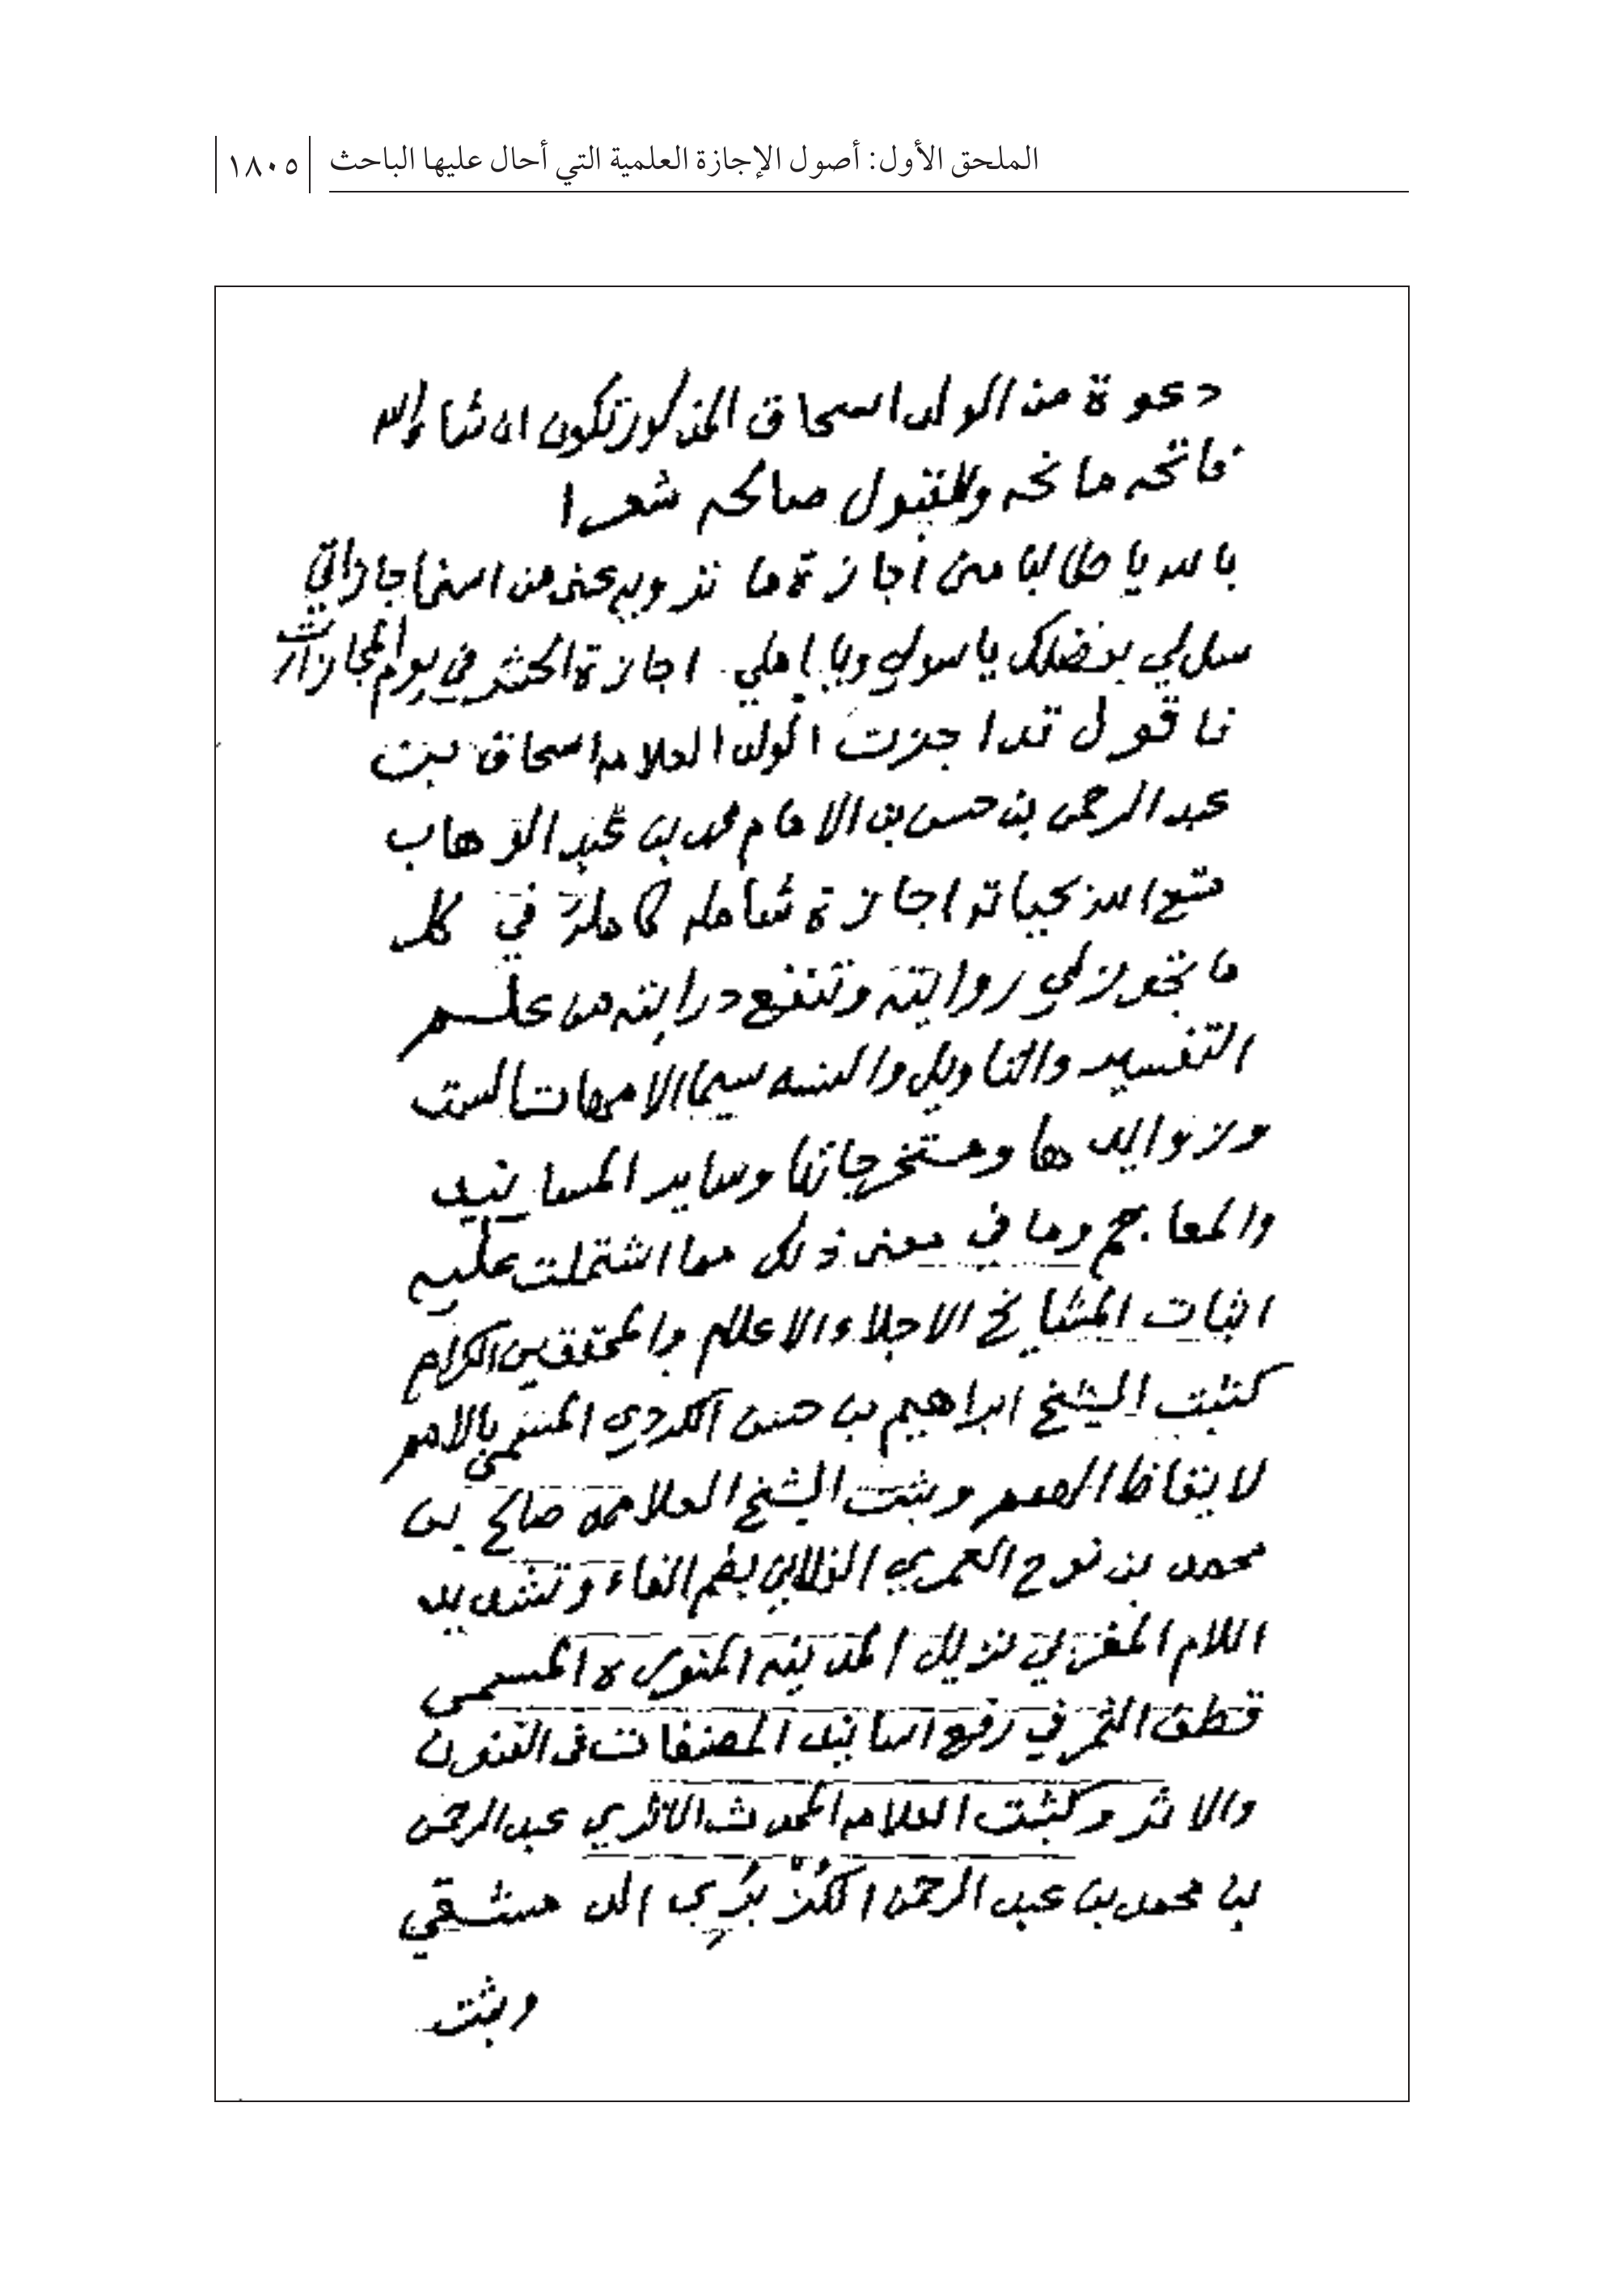 الملحق الأول: أصول الإجازة العلمية التي أحال عليها الباحث
١٨٠٥
دعوة من الولد اسحاق المذكور تكون ان شاء الله
فاتحه مانحه وللقبول صالحه شعرا
بالله يا طالبا منى اجازة ما ترويه عنى من اسنى اجازاتي
سل لي بفضلك يا سولي ويا املي اجازة الحشر في يوم المجازات
فاقول قد اجزت الولد العلامه اسحاق بن
عبد الرحمن بن حسن بن الامام محمد بن عبد الوهاب
متع الله بحياته اجازة شامله كاملة في كل
ما يجوز لي روايته وتنفع درايته من علم
التفسير والتاويل والسنه سيما الامهات الست
وزوايدها ومستخرجاتها وساير المسانيد
والمعاجم وما في معنى ذلك مما اشتملت عليه
اثبات المشايخ الاجلاء الاعلام والمحققين الكرام
كثبت الشيخ ابراهيم بن حسن الكردي المسمى بالامم
لايقاظ الهمم وبثبت الشيخ العلامه صالح بن
محمد بن نوح العمري الفلاني بضم الفاء وتشديد
اللام المغربي نزيل المدينه المنوره المسمى
قطف الثمر في رفع اسانيد المصنفات في الفنون
والاثر وكثبت العلامه المحدث الاثري عبد الرحمن
بن محمد بن عبد الرحمن الكُزْبَرِي الدمشقي
وبثبت